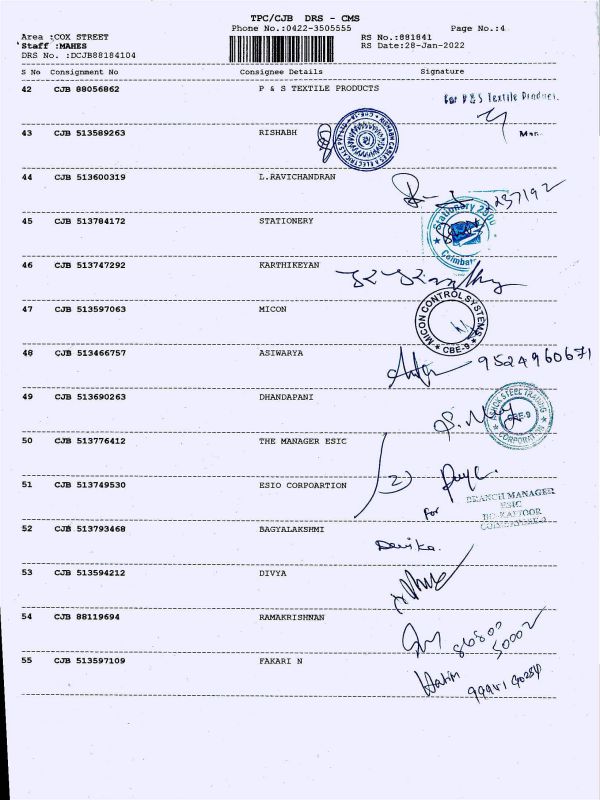 TPC/CJB DRS - CMS
Phone No.:0422-3505555 Page No.:4
Area :COX STREET RS No.:881841
Staff :MAHES RS Date:28-Jan-2022
DRS No. :DCJB88184104
S No Consignment No Consignee Details Signature
42 CJB 88056862 P & S TEXTILE PRODUCTS
For P & S Textile Product.
43 CJB 513589263 RISHABH
44 CJB 513600319 L.RAVICHANDRAN
237192
45 CJB 513784172 STATIONERY
Stationery
Coimbat
46 CJB 513747292 KARTHIKEYAN
47 CJB 513597063 MICON
MICON CONTROL SYSTEMS
* CBE-9 *
48 CJB 513466757 ASIWARYA
9524960671
49 CJB 513690263 DHANDAPANI
STEEL TRADING
CBE-9
CORPORATION
50 CJB 513776412 THE MANAGER ESIC
51 CJB 513749530 ESIO CORPOARTION
2)
for
BRANCH MANAGER
ESIC
52 CJB 513793468 BAGYALAKSHMI
Devika.
53 CJB 513594212 DIVYA
54 CJB 88119694 RAMAKRISHNAN
86800
50002
55 CJB 513597109 FAKARI N
Hatim